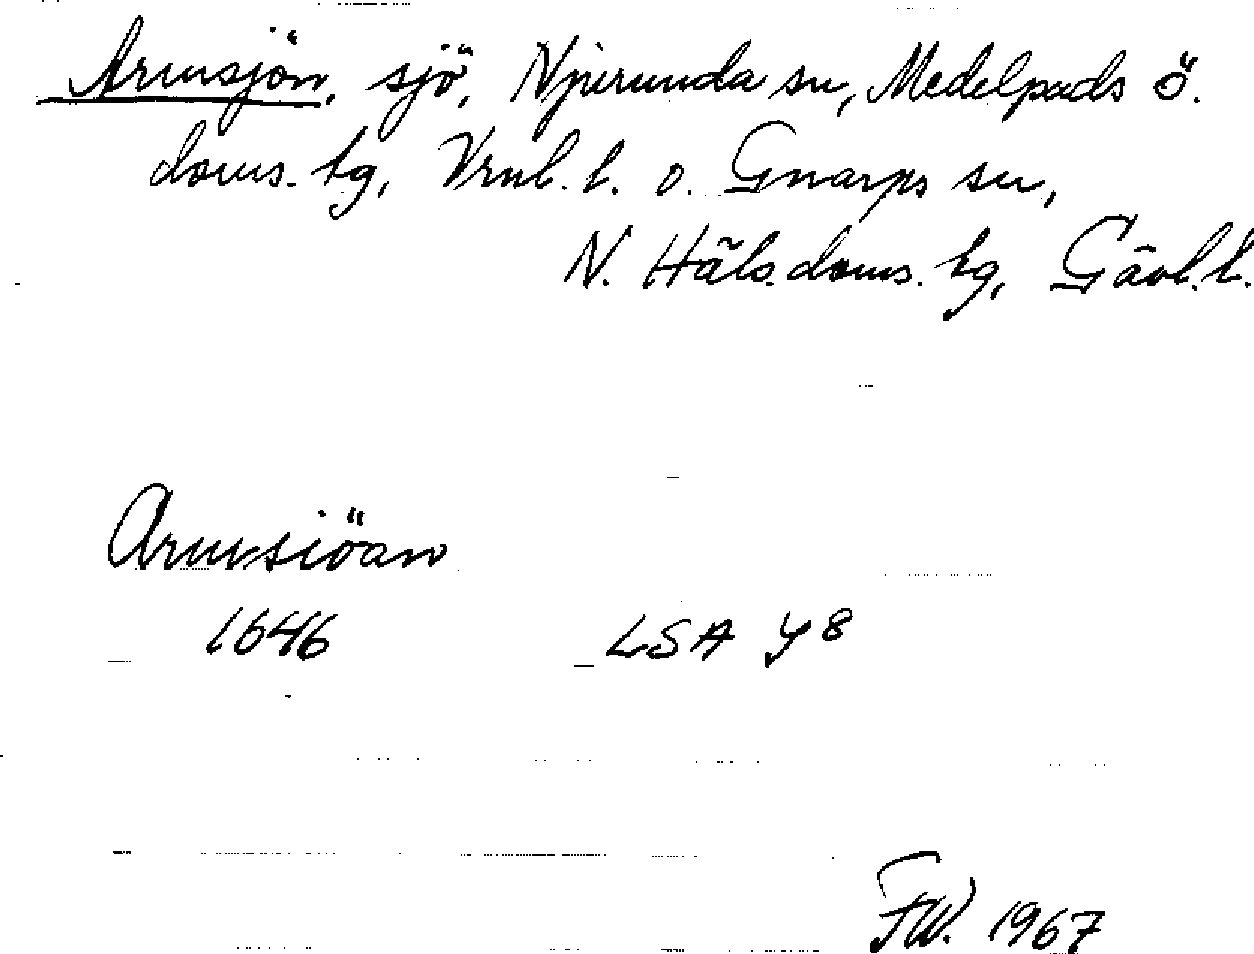 Armsjön, sjö, Njurunda sn, Medelpads ö.
doms. tg, Vrnl. l. o. Gnarps sn,
N. Häls. doms. tg, Gävl. l.
Armsiöan
1646 LSA Y8
FW. 1967